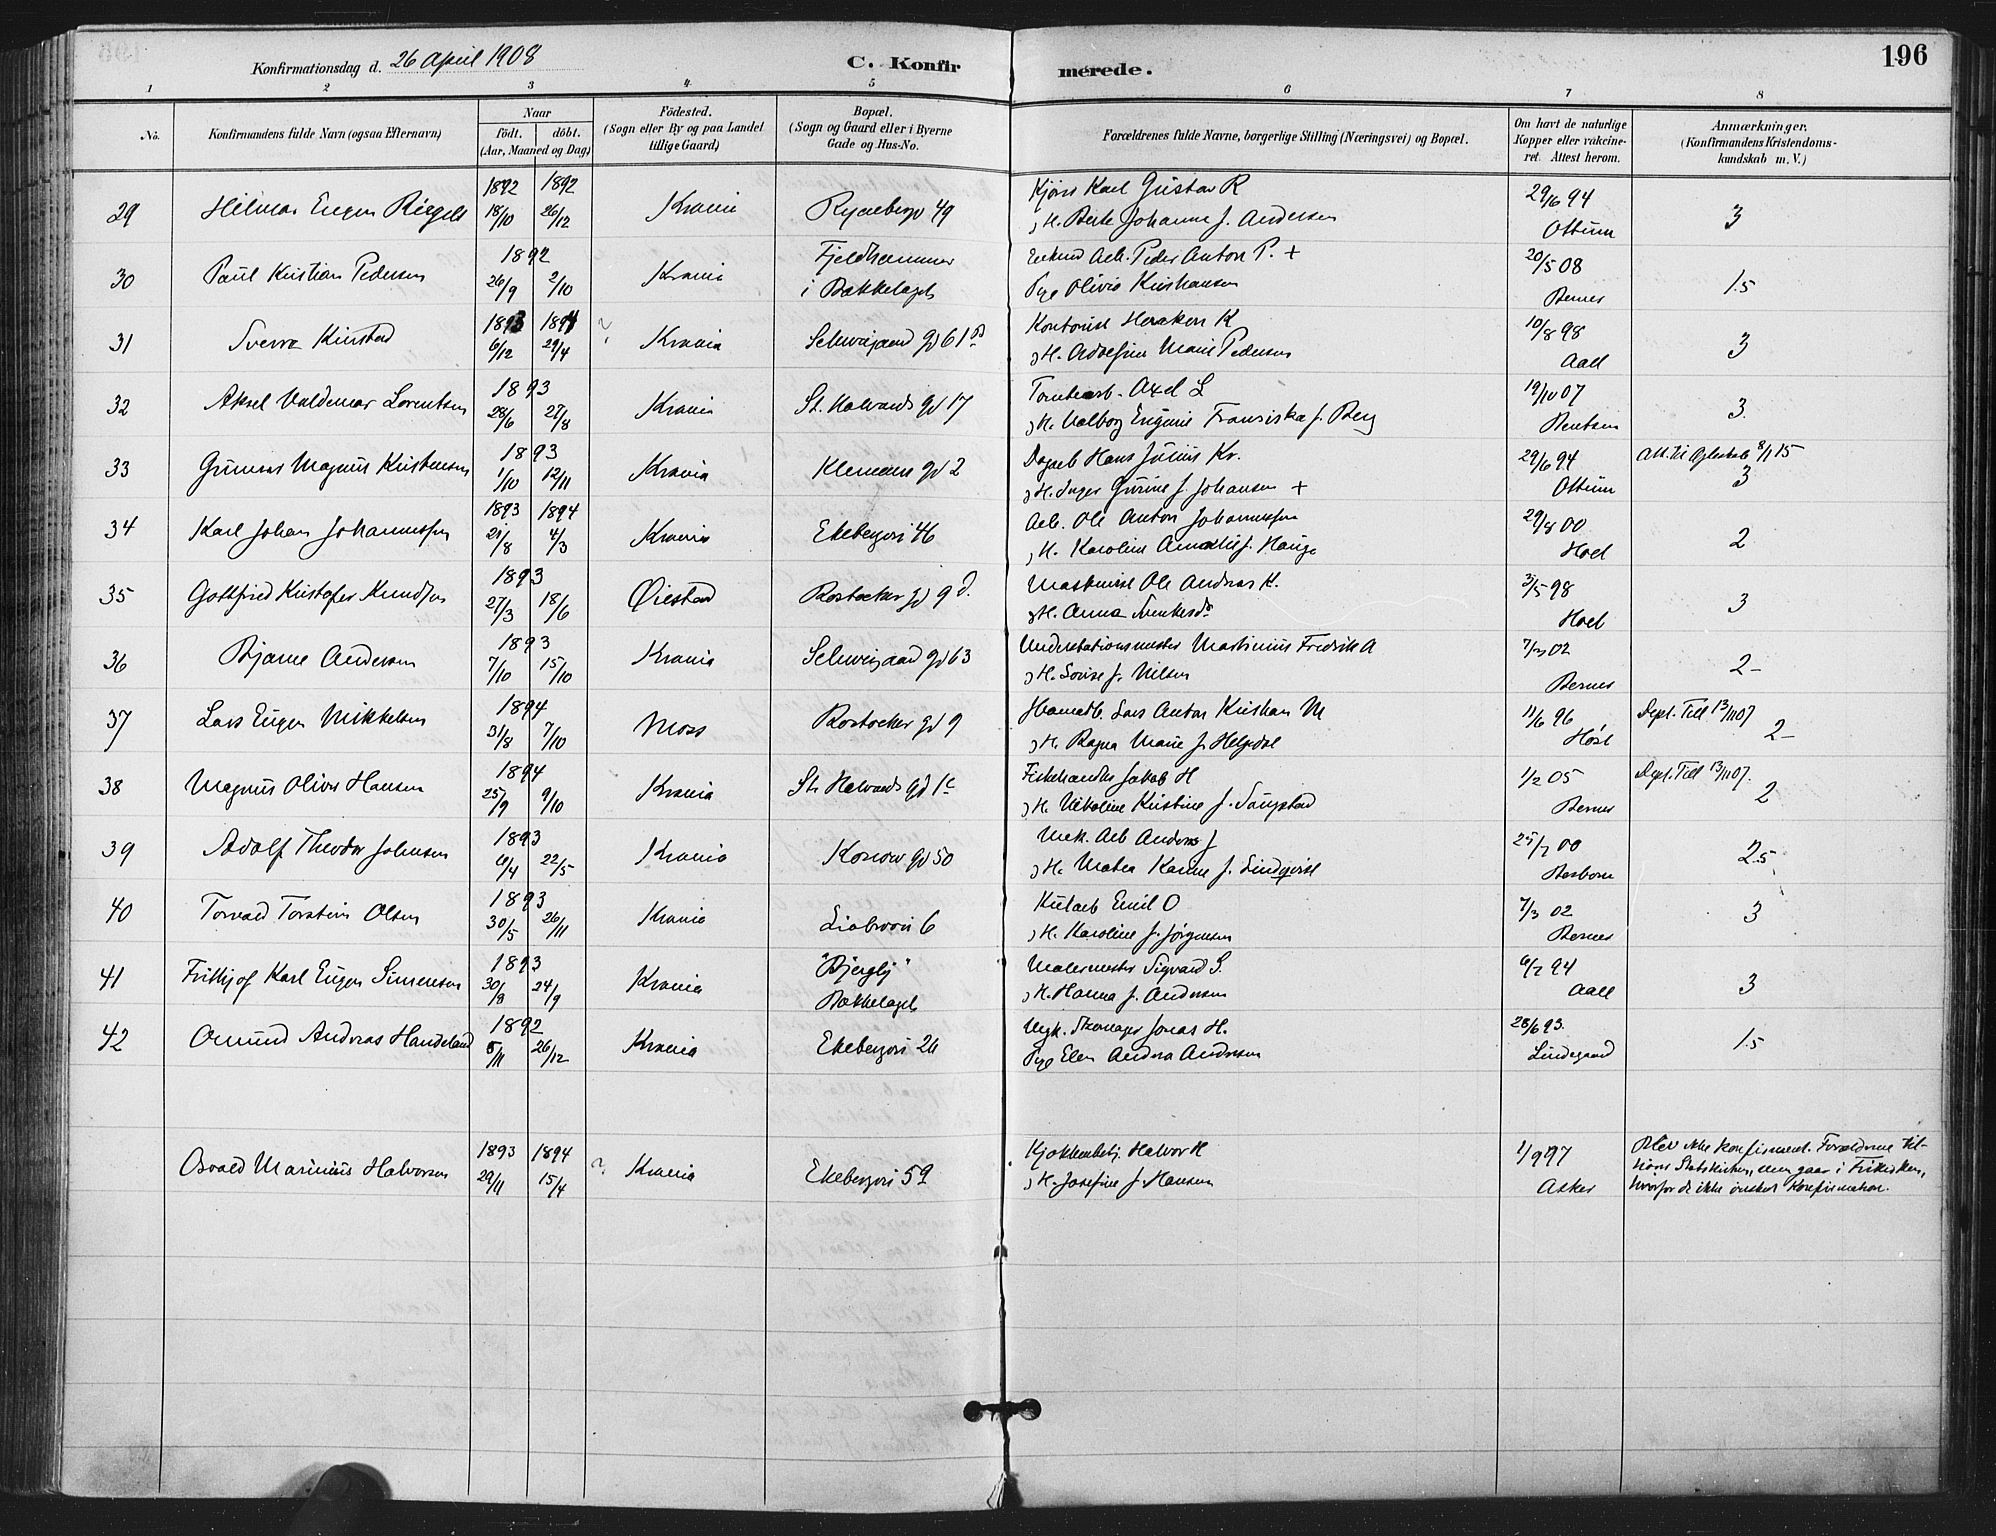 Konfirmationsdag d. 26 April 1908
C. Konfirmerede.
196
1 2 3 4 5 6 7 8
No.
Konfirmandens fulde Navn (ogsaa Efternavn)
Naar
födt. döbt.
(Aar, Maaned og Dag)
Födested.
(Sogn eller By og paa Landet
tillige Gaard)
Bopæl.
(Sogn og Gaard eller i Byerne
Gade og Hus-No.
Forældrenes fulde Navne, borgerlige Stilling (Næringsvei) og Bopæl.
Om havt de naturlige
Kopper eller vakcine-
ret. Attest herom.
Anmærkninger.
(Konfirmandens Kristendoms-
kundskab m. V.)
29 Hilmar Eugen 1892 18/10 1892 26/12 Krania Ryenbergv 49
Karl Gustav R
H. Berte Johanne f. Andersen
29/6 94 Ottum
3
30 Paul Kristian Pedersen 1892 26/9 2/10 Krania Fjeldhammer
i Bækkelaget
Arb. Peder Anton P. +
Pige Olivia Kristiansen
20/5 08 Bernes
1.5
31 Sverre 1893 6/12 1894 29/4 ? Krania Schweigaard gd 61
Kontorist Haakon K
H. Adolfine Marie Pedersen
10/8 98 Aall
3
32 Aksel Valdemar Lorentsen 1893 28/6 27/8 Krania St. Halvards gd 17
Axel L
H. Valborg Eugenie Fransiska f. Berg
19/10 07 Bentsen
3
33 Gunnar Magnus Kristensen 1893 1/10 12/11 Krania Klemens gd 2
Dagarb Hans Julius Kr.
H. Inger Gurine f. Johansen +
29/6 94 Ottum
3
34 Karl Johan Johannessen 1893 21/8 1894 4/3 Krania Ekebergvei 46
Arb. Ole Anton Johannessen
H. Karoline Amalie f. Hauge
29/8 00 Hoel
2
35 Gottfried Kristofer Knudsen 1893 27/3 18/6 Øiestad Rostocker gd 9 d.
Maskinist Ole Andreas K.
H. Anna
3/5 98 Hoel
3
36 Bjarne Andersen 1893 7/10 15/10 Krania Schweigaard gd 63
Understationsmester Martinius Fredrik A
H. Lovise f. Nilsen
7/3 02 Bernes
2-
37 Lars Eugen Mikkelsen 1894 31/8 7/10 Moss Rostocker gd 9
Lars Anton Kristian M
H. Ragna Marie f. Helgedal
11/6 96 Høst
Dept. Till 13/11 07
2-
38 Magnus Oliver Hansen 1894 25/9 9/10 Krania St. Halvards gd 1c
Fiskehandler Jakob H
H. Nikoline Kristine f. Saugstad
1/2 05 Bernes
Dept. Till 13/11 07.
2
39 Adolf Theodor Johnsen 1893 4/4 22/5 Krania Konow gd 50
Mek. Arb Anders J
H. Matea Karine f. Lindqvist
25/7 00
2.5
40 Torvald Torstein Olsen 1893 30/5 26/11 Krania Liabrovei 6
Kularb Emil O
H. Karoline f. Jørgensen
7/3 02 Bernes
3
41 Frithjof Karl Eugen Simensen 1893 30/8 24/9 Krania "Bjergly"
Bækkelaget
Malermester Sigvard S.
H. Hanna f. Andersen
6/7 94 Aall
3
42 Omund Andreas Handeland 1892 5/11 26/12 Krania Ekebergvei 26
Ungk. Skomager Jonas H.
Pige Elen Andrea Andersen
28/6 93. Lindegaard
1.5
Osvald Marinius Halvorsen 1893 20/11 1894 15/4 ? Krania Ekebergvei 59
Halvor H
H. Josefine f. Hansen
1/9 97 Asker
Blev ikke konfirmeret. Forældrene til-
hører Statskirken, men gaar i Frikirken,
hvorfor de ikke ønsket Konfirmation.